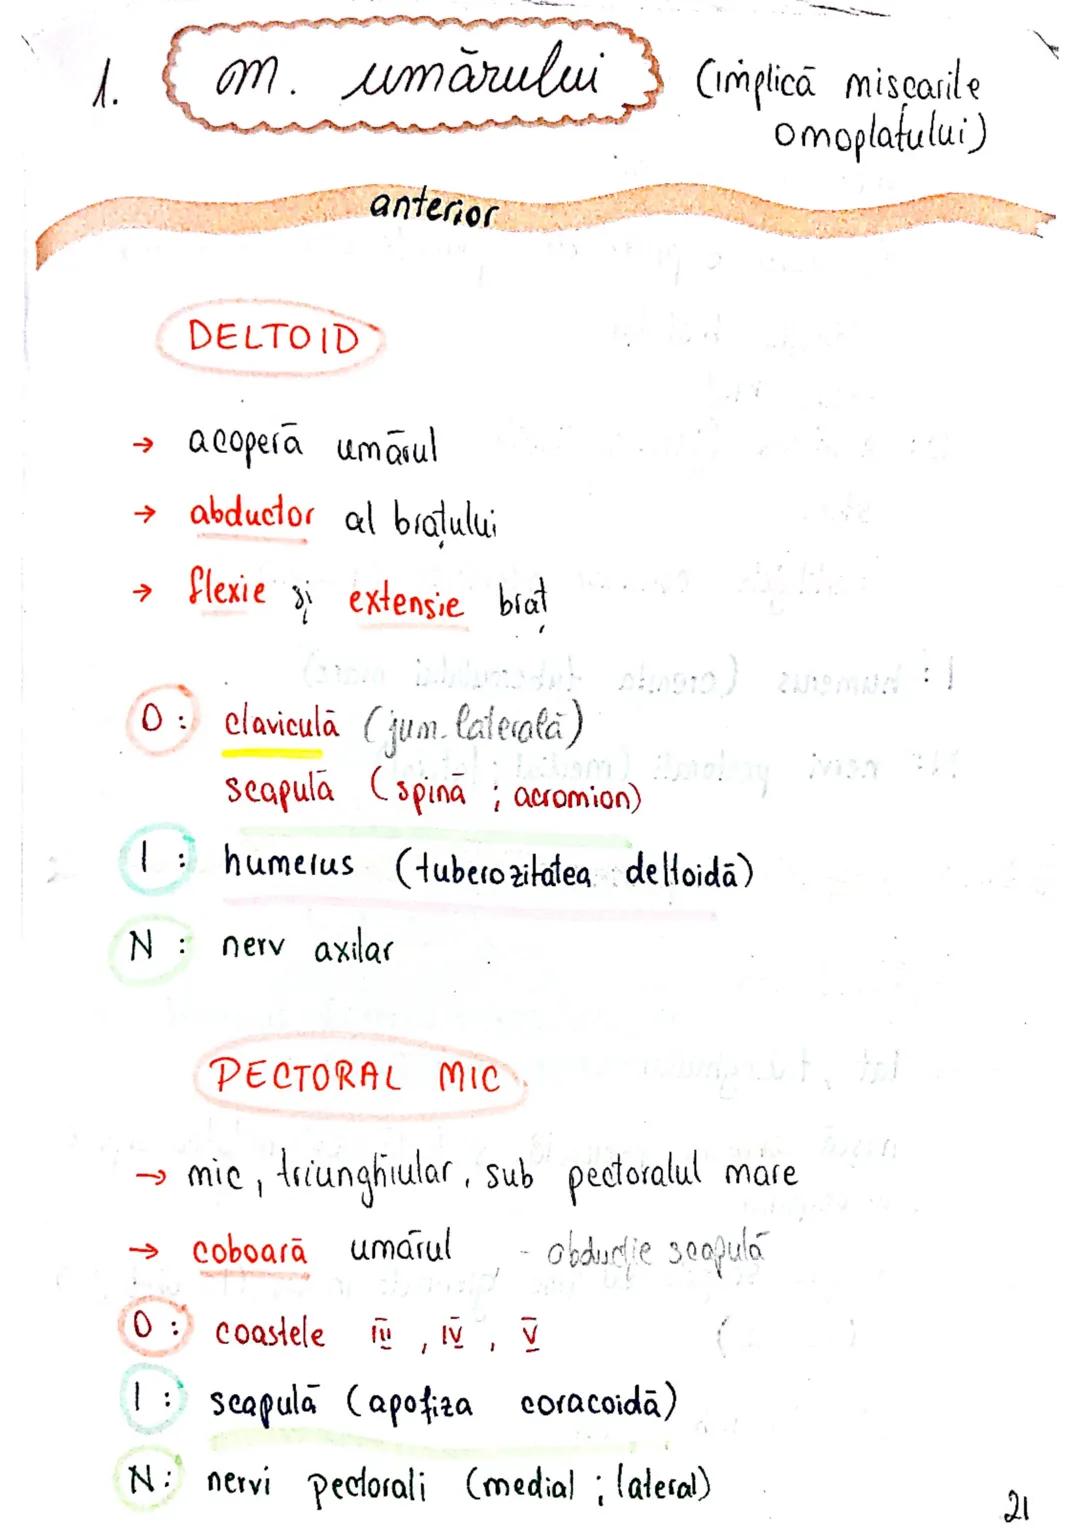 1. m. umărului (implică mișcarile
omoplatului)
anterior
DELTOID
→ acoperă umărul
→ abductor al brațului
→ flexie și extensie braț
O: claviculă (jum. laterală)
scapulă (spină ; acromion)
I: humerus (tuberozitatea deltoidă)
N: nerv axilar
PECTORAL MIC
→ mic, triunghiular, sub pectoralul mare
→ coboară umărul - abducție scapulă
O: coastele III, IV, V
I: scapulă (apofiza coracoidă)
N: nervi pectorali (medial ; lateral)
21